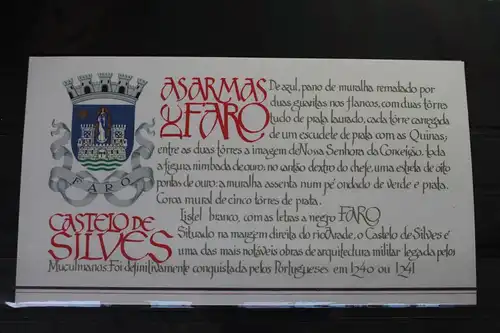 AS ARMAS
DE FARO
De azul, pano de muralha rematado por
duas guaritas nos flancos, com duas tôrres
tudo de prata lavrado, cada tôrre carregada
de um escudete de prata com as Quinas;
entre as duas tôrres a imagem de Nossa Senhora da Conceição, toda
a figura nimbada de ouro; no cantão dextro do chefe, uma estrela de oito
pontas de ouro; a muralha assenta num pé ondado de verde e prata.
Coroa mural de cinco tôrres de prata.
Listel branco, com as letras a negro FARO
FARO
CASTELO DE
SILVES
Situado na margem direita do rio Arade, o Castelo de Silves é
uma das mais notáveis obras de arquitectura militar legada pelos
Muçulmanos. Foi definitivamente conquistada pelos Portugueses em 1240 ou 1241